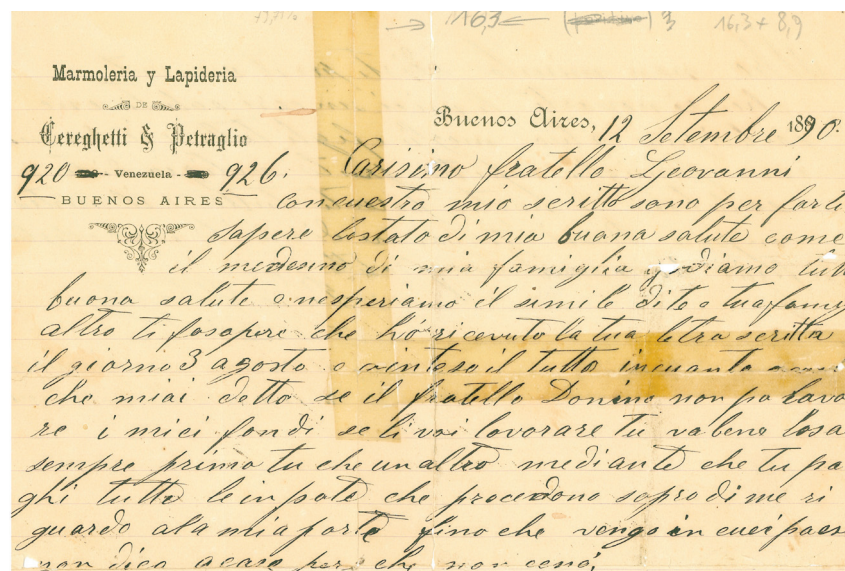 16,3 16,3 + 8,9
Marmoleria y Lapideria
DE
Cereghetti & Petraglio
920 - Venezuela - 926.
BUENOS AIRES
Buenos Aires, 12 Setembre 1890.
Carisino fratello Geovanni
concuestro mio scritto sono per farti
sapere lostato di mia buona salute come
il medesino di mia famiglia godiamo tutti
buona salute e nesperiamo il simile dite e tua famig
altro ti fosapere che hó ricevuto la tua letra scritta
il giorno 3 agosto e ointeso il tutto incuanto
che miai detto se il fratello Donino non po lavo
re i miei fondi se li voi lovorare tu va bene losa
sempre primo tu che un altro mediante che tu pa
ghi tutte le inposte che procedono sopro di me ri
guardo ala mia parte fino che vengo in cuei paes
non dico acaso perche non cenó,